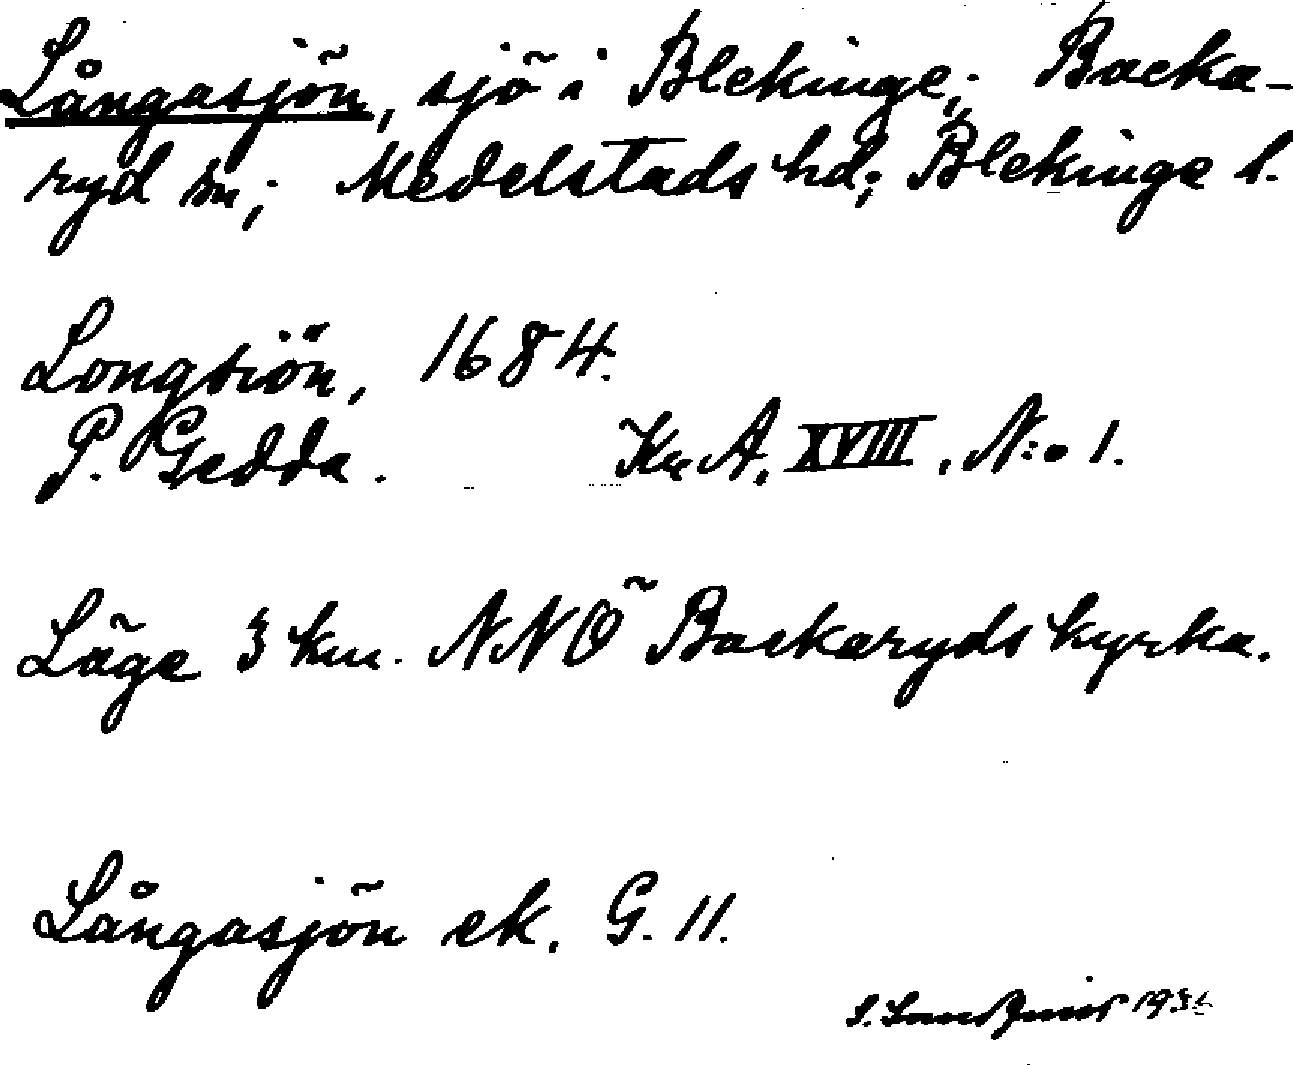 Långasjön, sjö i Blekinge; Backa-
ryd sn; Medelstads hd; Blekinge l.
Longsiön, 1684.
P. Gedda. Kr. A, XVIII, N:o 1.
Läge 3 km. NNÖ Backaryds kyrka.
Långasjön ek. G. 11.
S. 1936